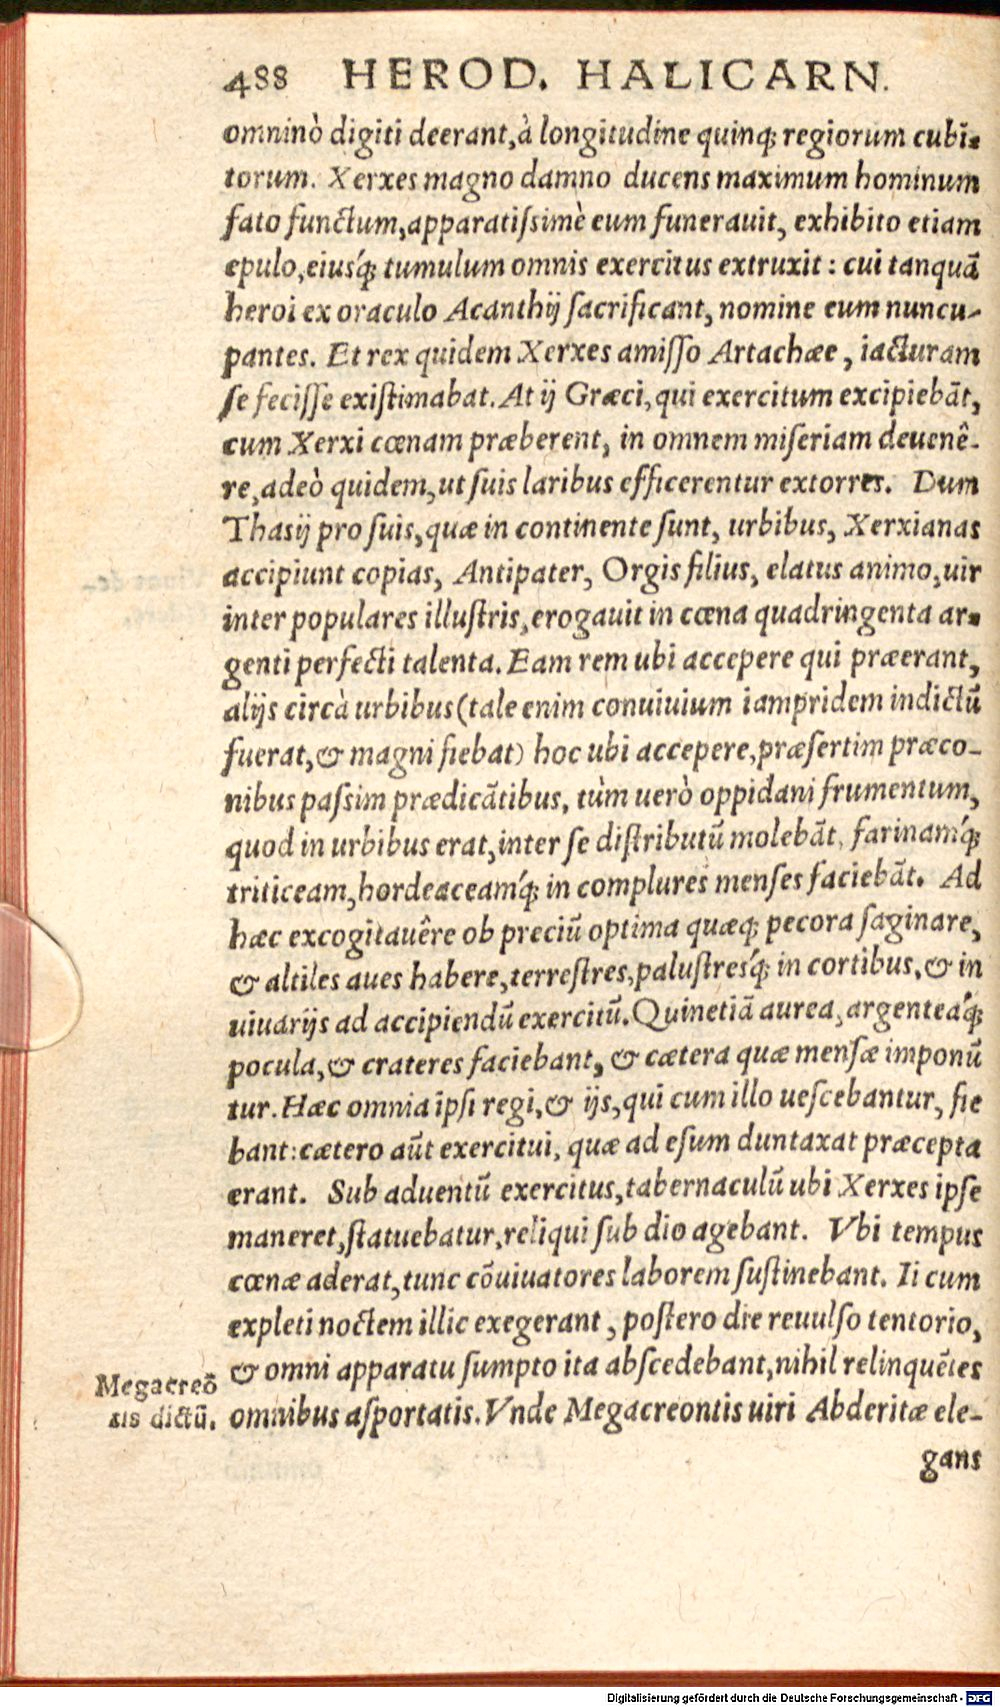 488 HEROD. HALICARN.
omninò digiti deerant, à longitudine quinq; regiorum cubi-
torum. Xerxes magno damno ducens maximum hominum
fato functum, apparatißimè eum funerauit, exhibito etiam
epulo, eiusq́; tumulum omnis exercitus extruxit: cui tanquã
heroi ex oraculo Acanthij sacrificant, nomine eum nuncu-
pantes. Et rex quidem Xerxes amisso Artachæe, iacturam
se fecisse existimabat. At ij Græci, qui exercitum excipiebãt,
cum Xerxi cœnam præberent, in omnem miseriam deuenê-
re, adeò quidem, ut suis laribus efficerentur extorres. Dum
Thasij pro suis, quæ in continente sunt, urbibus, Xerxianas
accipiunt copias, Antipater, Orgis filius, elatus animo, uir
inter populares illustris, erogauit in cœna quadringenta ar-
genti perfecti talenta. Eam rem ubi accepere qui præerant,
alijs circà urbibus (tale enim conuiuium iampridem indictũ
fuerat, & magni fiebat) hoc ubi accepere, præsertim præco-
nibus paßim prædicãtibus, tùm uerò oppidani frumentum,
quod in urbibus erat, inter se distributũ molebãt, farinamq́;
triticeam, hordeaceamq́; in complures menses faciebãt. Ad
hæc excogitauêre ob preciũ optima quæq; pecora saginare,
& altiles aues habere, terrestres, palustresq́; in cortibus, & in
uiuarijs ad accipiendũ exercitũ. Quinetiã aurea, argenteaq́;
pocula, & crateres faciebant, & cætera quæ mensæ imponũ
tur. Hæc omnia ipsi regi, & ijs, qui cum illo uescebantur, fie
bant: cætero aũt exercitui, quæ ad esum duntaxat præcepta
erant. Sub aduentũ exercitus, tabernaculũ ubi Xerxes ipse
maneret, statuebatur, reliqui sub dio agebant. Vbi tempus
cœnæ aderat, tunc cõuiuatores laborem sustinebant. Ii cum
expleti noctem illic exegerant, postero die reuulso tentorio,
& omni apparatu sumpto ita abscedebant, nihil relinquẽtes
Megacreõ
tis dictũ.
omnibus asportatis. Vnde Megacreontis uiri Abderitæ ele-
gans
Digitalisierung gefördert durch die Deutsche Forschungsgemeinschaft - DFG